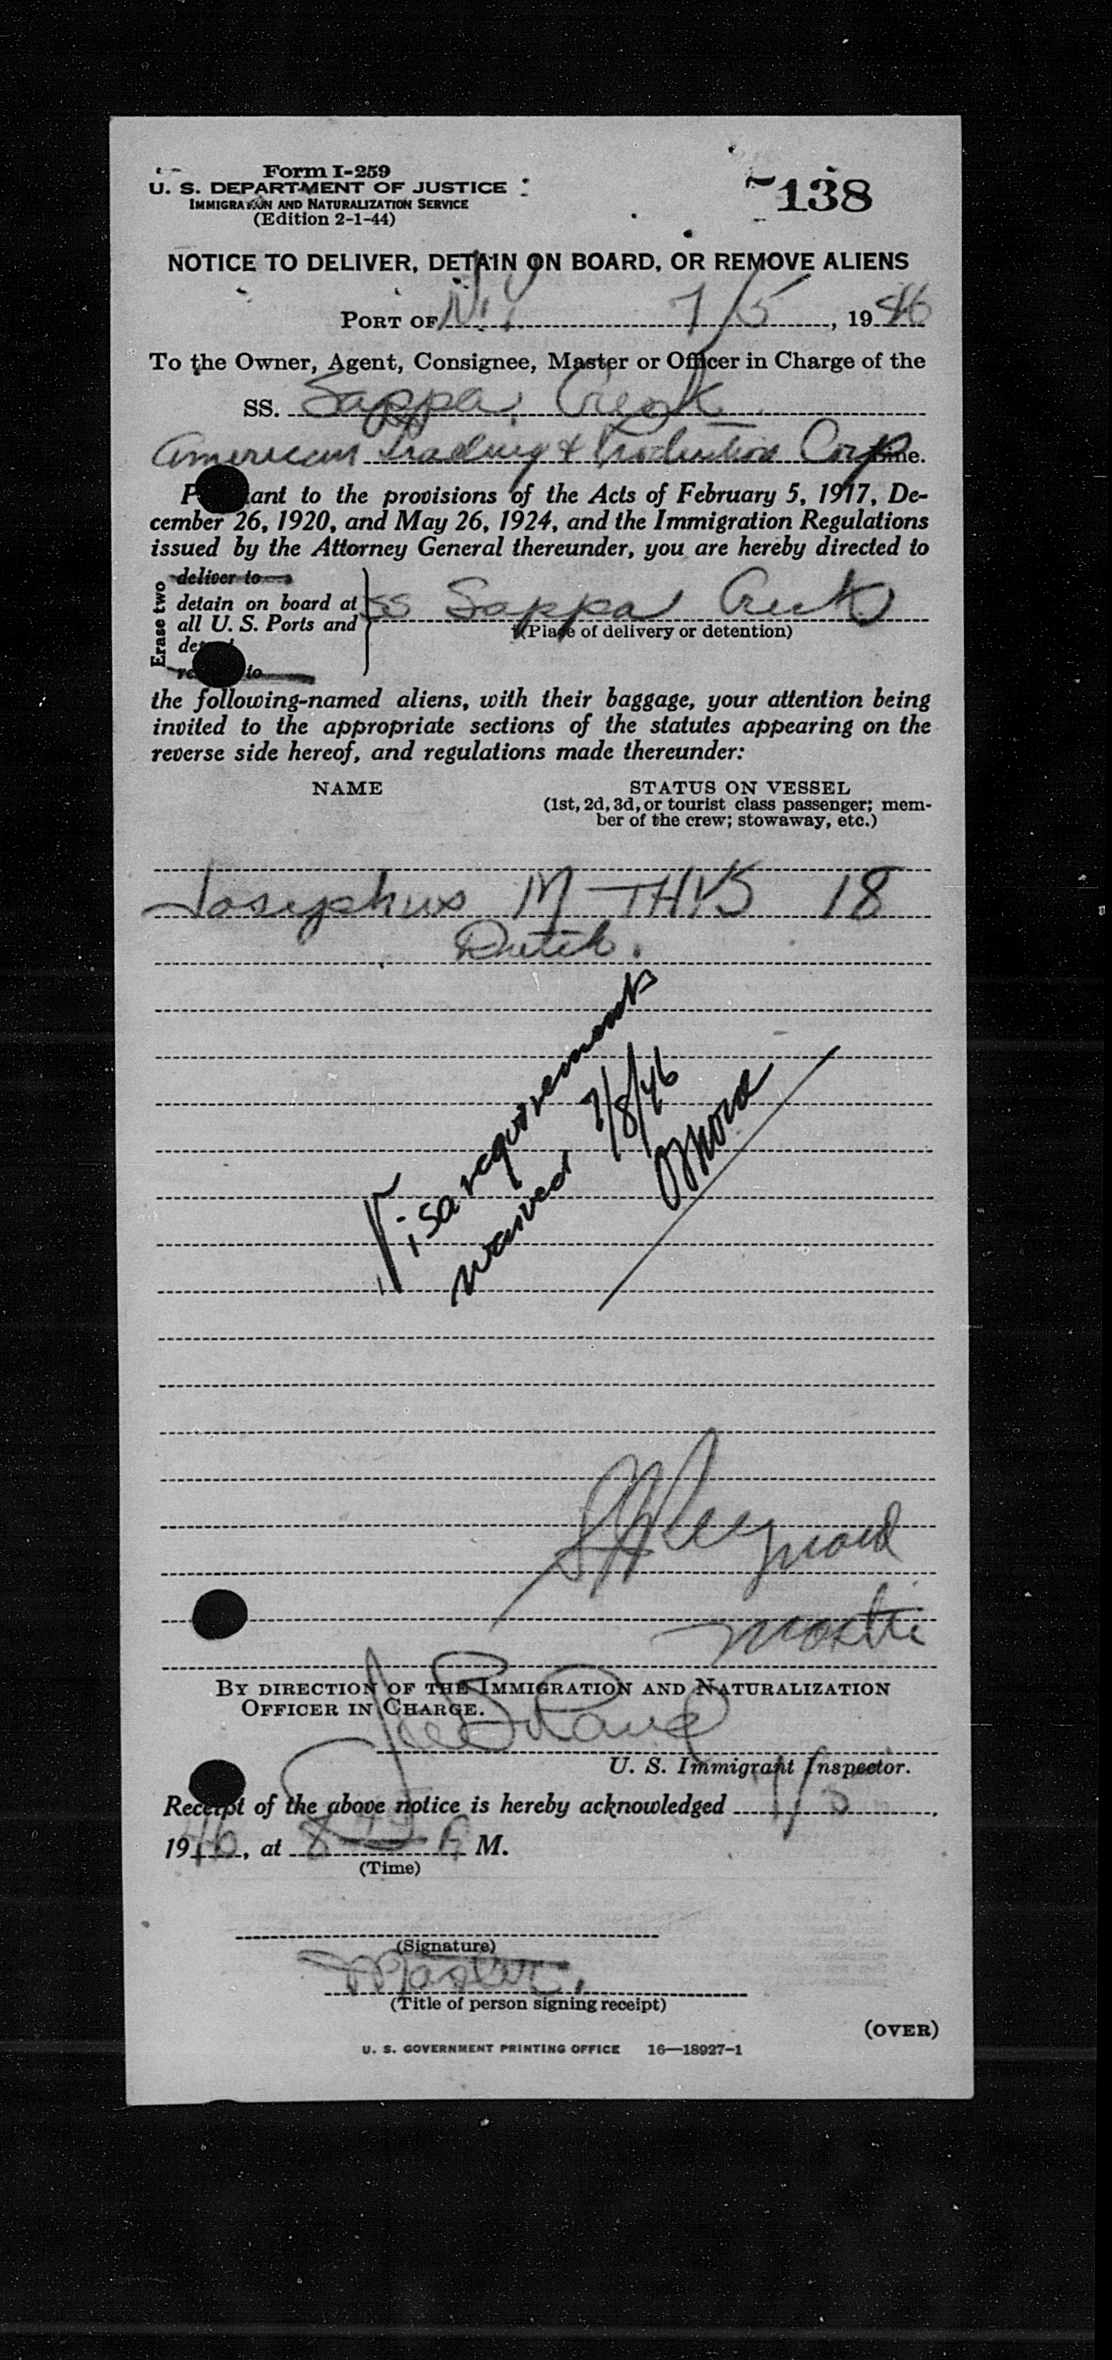 Form I-259
U. S. DEPARTMENT OF JUSTICE
IMMIGRATION AND NATURALIZATION SERVICE
(Edition 2-1-44)
138
NOTICE TO DELIVER, DETAIN ON BOARD, OR REMOVE ALIENS
PORT OF N.Y. 7/5, 1946
To the Owner, Agent, Consignee, Master or Officer in Charge of the
SS. Sappa Creek
American Trading & Production Corp Line.
Pursuant to the provisions of the Acts of February 5, 1917, De-
cember 26, 1920, and May 26, 1924, and the Immigration Regulations
issued by the Attorney General thereunder, you are hereby directed to
Erase two
deliver to
detain on board at
all U. S. Ports and
to
SS Sappa Creek
(Place of delivery or detention)
the following-named aliens, with their baggage, your attention being
invited to the appropriate sections of the statutes appearing on the
reverse side hereof, and regulations made thereunder:
NAME
STATUS ON VESSEL
(1st, 2d, 3d, or tourist class passenger; mem-
ber of the crew; stowaway, etc.)
Josephus M THYS 18
Dutch.
Visa requirements
waived 7/8/46
BY DIRECTION OF THE IMMIGRATION AND NATURALIZATION
OFFICER IN CHARGE.
U. S. Immigrant Inspector.
Receipt of the above notice is hereby acknowledged 7/5,
1946, at 8 A M.
(Time)
(Signature)
Master.
(Title of person signing receipt)
(OVER)
U. S. GOVERNMENT PRINTING OFFICE 16—18927-1